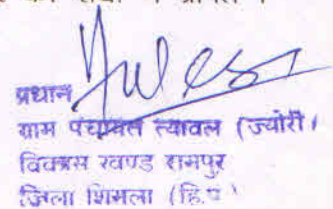 प्रधान
ग्राम पंचायत त्यावल (ज्योरी)
विकास खण्ड रामपुर
जिला शिमला (हि.प.)